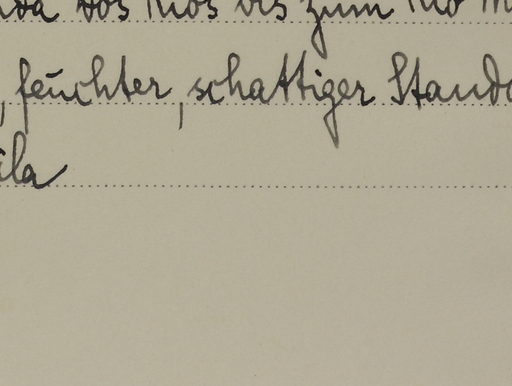 dos Rios bis zum Rio
, feuchter, schattiger Stando
ila